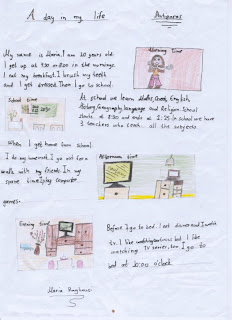 A day in my life
Antiparos
My name is Maria. I am 10 years old.
I get up at 7:30 or 8:00 in the morning.
I eat my breakfast. I brush my teeth
and I get dressed. Then I go to school.
Morning time
School time
At school we learn Maths, Greek, English,
History, Geography, language and Religion. School
starts at 8:30 and ends at 1:25. In school we have
3 teachers who teach all the subjects
When I get home from school
I do my homework. I go out for a
walk with my friends. In my
spare time I play computer
games.
Afternoon time
Evening time
Before I go to bed I eat dinner and I watch
tv. I like watching but I like
watching TV series, too. I go to
bed at 10:00 o'clock
Maria